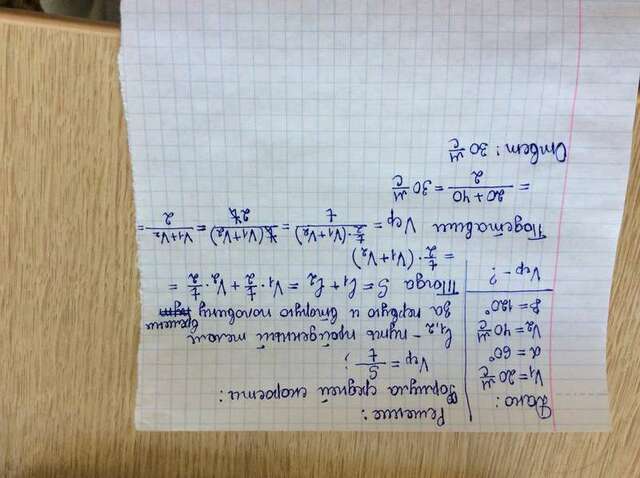 Дано:
V₁ = 20 м/с
α = 60°
V₂ = 40 м/с
β = 120°
Vср - ?
Решение:
Формула средней скорости:
Vср = S/t ;
l₁,₂ - путь пройденный телом
за первую и вторую половину времени
Тогда S = l₁ + l₂ = V₁ · t/2 + V₂ · t/2 =
= t/2 · (V₁+V₂)
Подставим Vср = (t/2 · (V₁+V₂))/t = t(V₁+V₂)/2t = (V₁+V₂)/2 =
= (20+40)/2 = 30 м/с
Ответ: 30 м/с